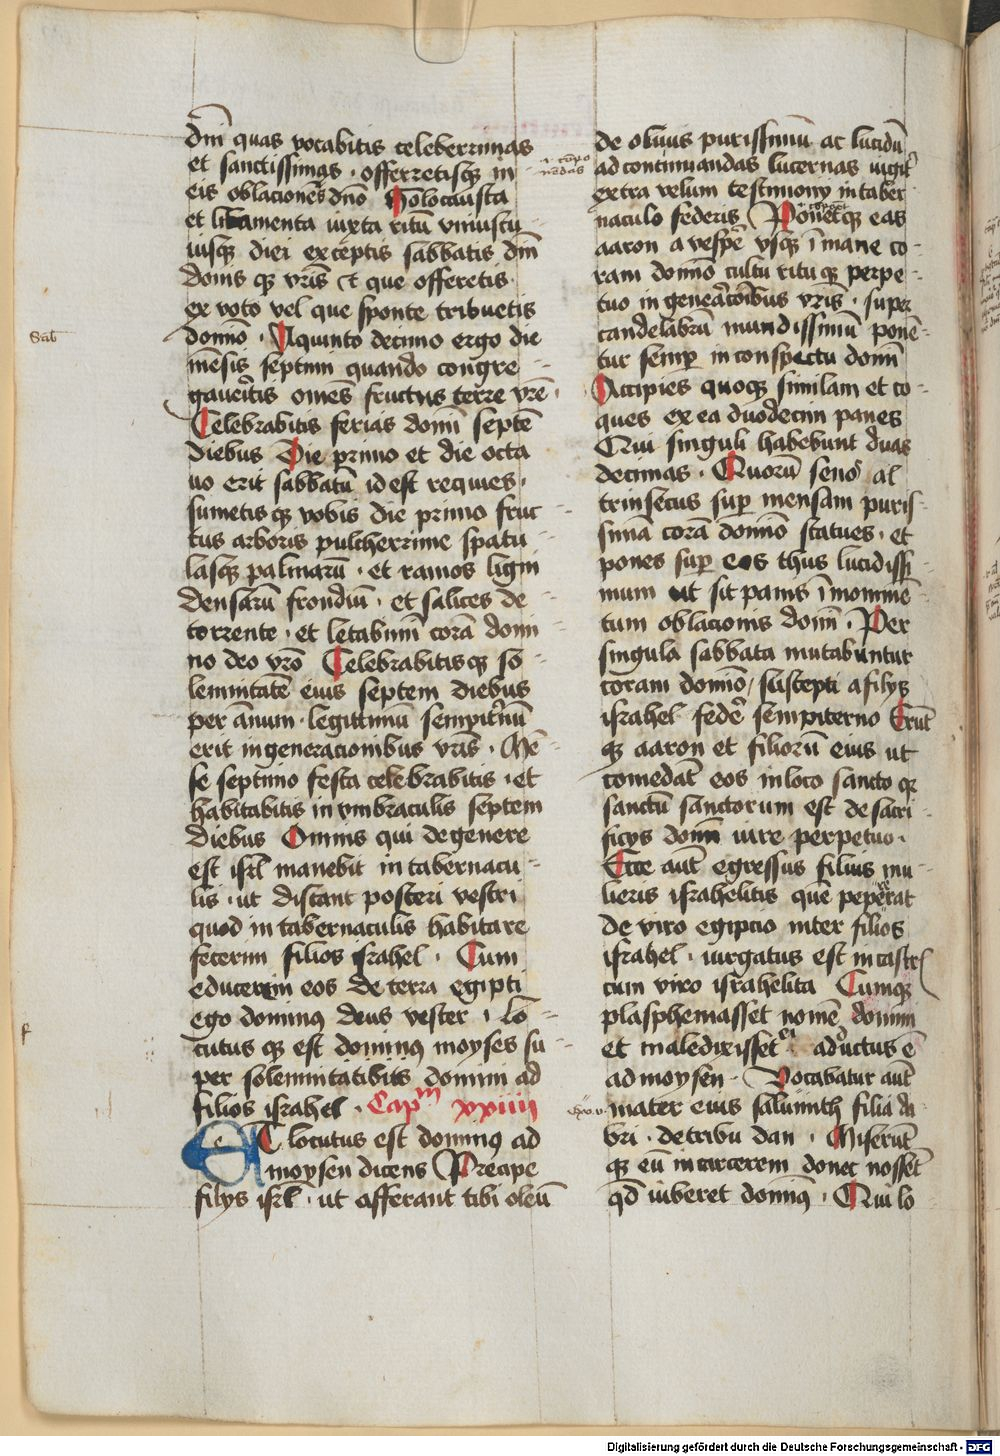 dm̄ quas vocabitis celeberrimas
et sanctissimas · offerretisqꝫ in
eis oblaciones dn̄o Holocausta
et libamenta iuxta ritū vniuscu
iusqꝫ diei exceptis sabbatis dn̄i
donis qꝫ vr̄is et que offeretis
ex voto vel que sponte tribuetis
domīo · A quinto decimo ergo die
mēsis septimi quando congre
gaueritis om̄es fructus terre vr̄e ·
Celebrabitis ferias domī septē
diebus Die primo et die octa
uo erit sabbatū id est requies ·
sumetis qꝫ vobis die primo fruc
tus arboris pulcherrime spatu
lasqꝫ palmarū · et ramos ligni
densarū frondiū · et salices de
torrente · et letabimī corā domi
no deo vr̄o Celebrabitisqꝫ so
lemnitatē eius septem diebus
per ānum · legittimū sempit̄nū
erit in generacionibus vr̄is · Mē
se septimo festa celebrabitis · et
habitabitis in vmbraculis septem
diebus Omnis qui de genere
est isrl̄ manebit in tabernacu
lis · ut discant posteri vestri
quod in tabernaculis habitare
fecerim filios israhel · Cum
educerem eos de terra egipti
ego dominꝰ deus vester · lo
cutus qꝫ est dominꝰ moyses su
per solemnitatibus domini ad
filios israhel · Capm xxiiii
ET locutus est dominꝰ ad
moysen dicens Precipe
filys isrl̄ · ut afferant tibi oleū
de oliuis purissimū ac lucidū
ad continuandas lucernas iugit̄
extra velum testimony in taber
naculo federis Ponetqꝫ eas
aaron a vesp̄e vsqꝫ ī mane co
ram domīo cultu rituqꝫ perpe
tuo in gener̄acōibus vr̄is · super
candelabrū mundissimū ponē
tur semp̄ in conspectu domī
Accipies quoqꝫ similam et co
ques ex ea duodecim panes
Qui singuli habebunt duas
decimas · Quorū senos al
trinsecus sup̄ mensam puris
simā corā domīo statues · et
pones sup̄ eos thus lucidissi
mum ut sit panis ī monimē
tum oblacionis domī · Per
singula sabbata mutabuntur
coram domīo suscepti a filys
israhel feder̄e sempiterno Erūt
qꝫ aaron et filiorū eius ut
comedāt eos in loco sancto qꝫ
sanctū sanctorum est de sacri
ficys domī iure perpetuo ·
Ecce aūt egressus filius mu
lieris israhelitis quē pepererat
de viro egipcio inter filios
israhel · iurgatus est in castr̄
cum viro israhelita Cumqꝫ
plasphemasset nomē domini
et maledixisset ei adductus ē
ad moysen · Vocabatur aūt
mater eius salumith filia da
bri · de tribu dan · Miserūt
qꝫ eū in carcerem donec nossēt
qd̄ iuberet dominꝰ · Qui lo
Sab̄
Digitalisierung gefördert durch die Deutsche Forschungsgemeinschaft - DFG